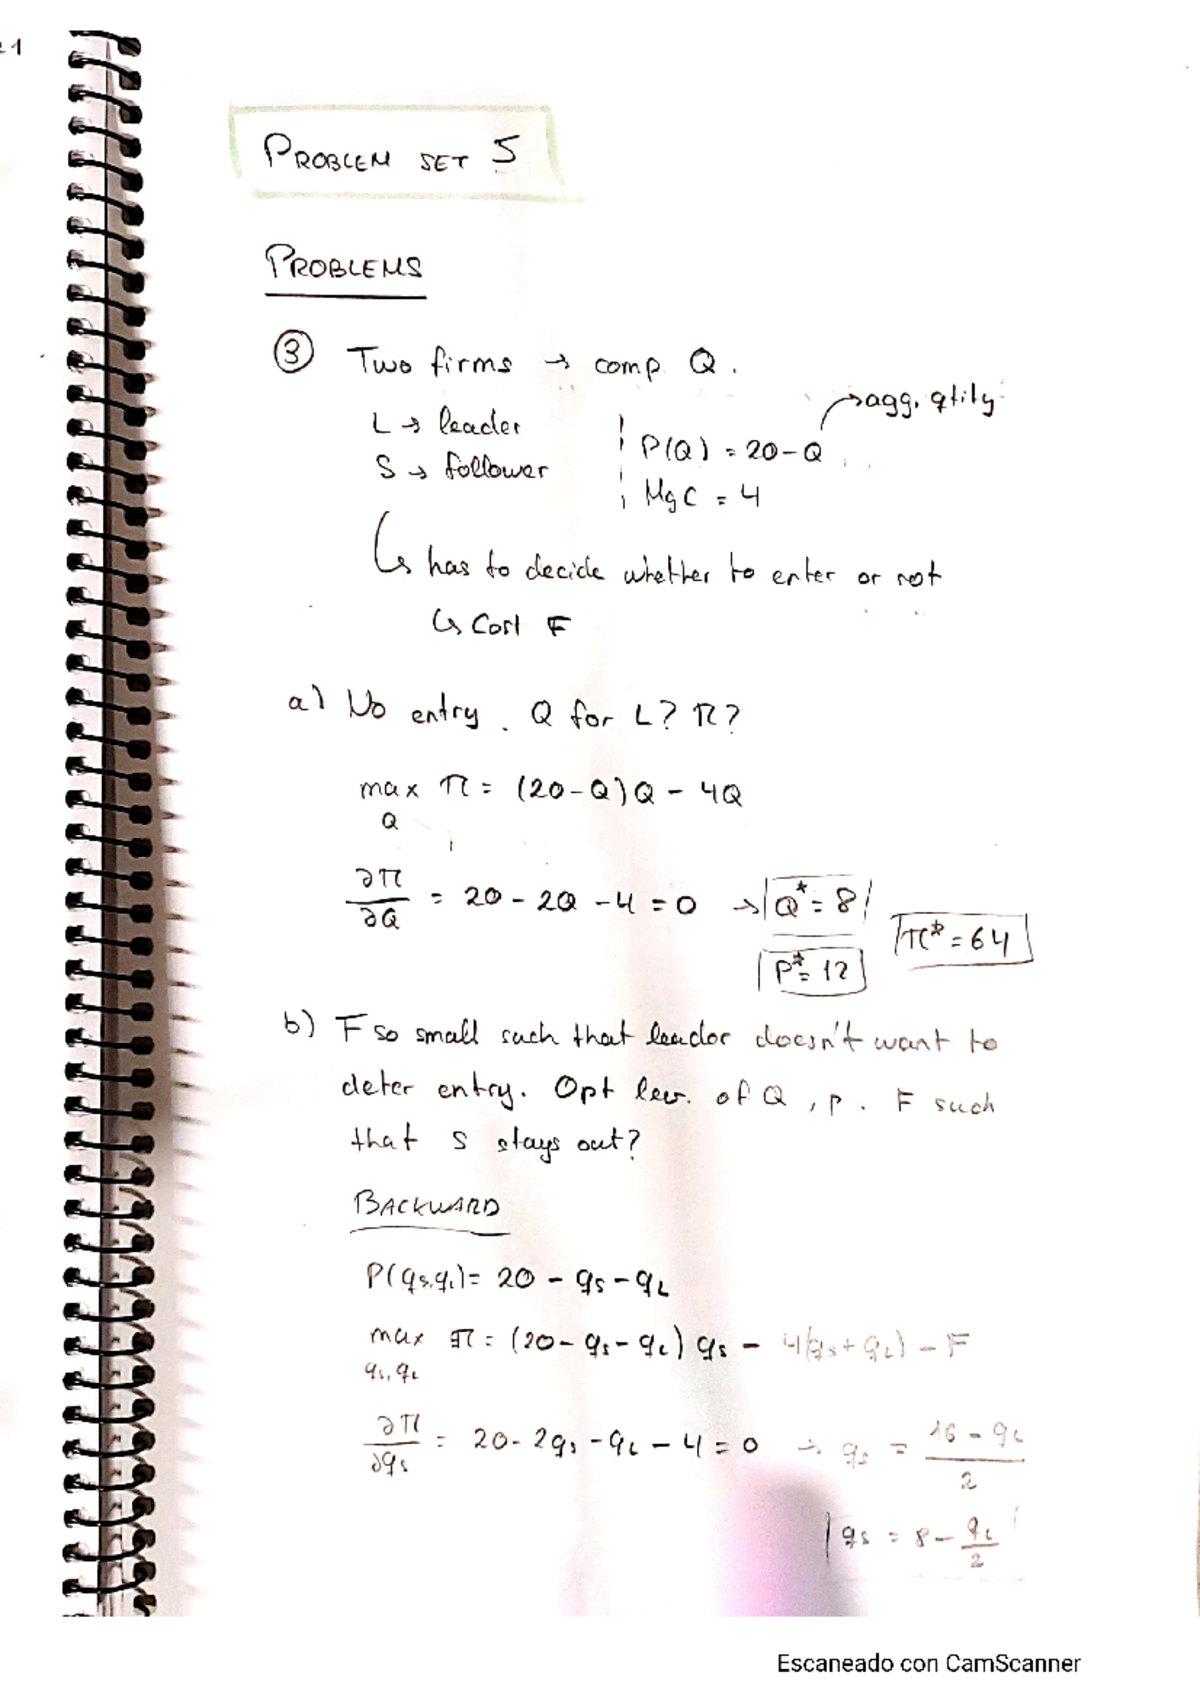 21
PROBLEM SET 5
PROBLEMS
③ Two firms → comp. Q.
→ agg. qtity
L → leader
P(Q) = 20 - Q
S → follower
MgC = 4
↳ has to decide whether to enter or not
↳ Cost F
a) No entry. Q for L? π?
max π = (20-Q)Q - 4Q
Q
∂π/∂Q = 20 - 2Q - 4 = 0 → Q* = 8
π* = 64
P* = 12
b) F so small such that leador doesn't want to
deter entry. Opt lev. of Q, p. F such
that S stays out?
BACKWARD
P(qs,qL) = 20 - qs - qL
max π = (20 - qs - qL) qs - 4(qs + qL) - F
qs, qL
∂π/∂qs = 20 - 2qs - qL - 4 = 0 → qs = (16 - qL)/2
qs = 8 - qL/2
Escaneado con CamScanner